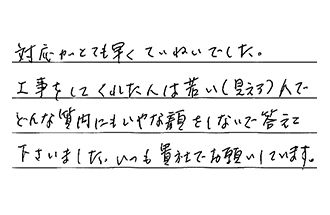 対応がとても早くていねいでした。
工事をしてくれた人は若い(見える)人で
どんな質問にもいやな顔をしないで答えて
下さいました。いつも貴社でお願いしています。